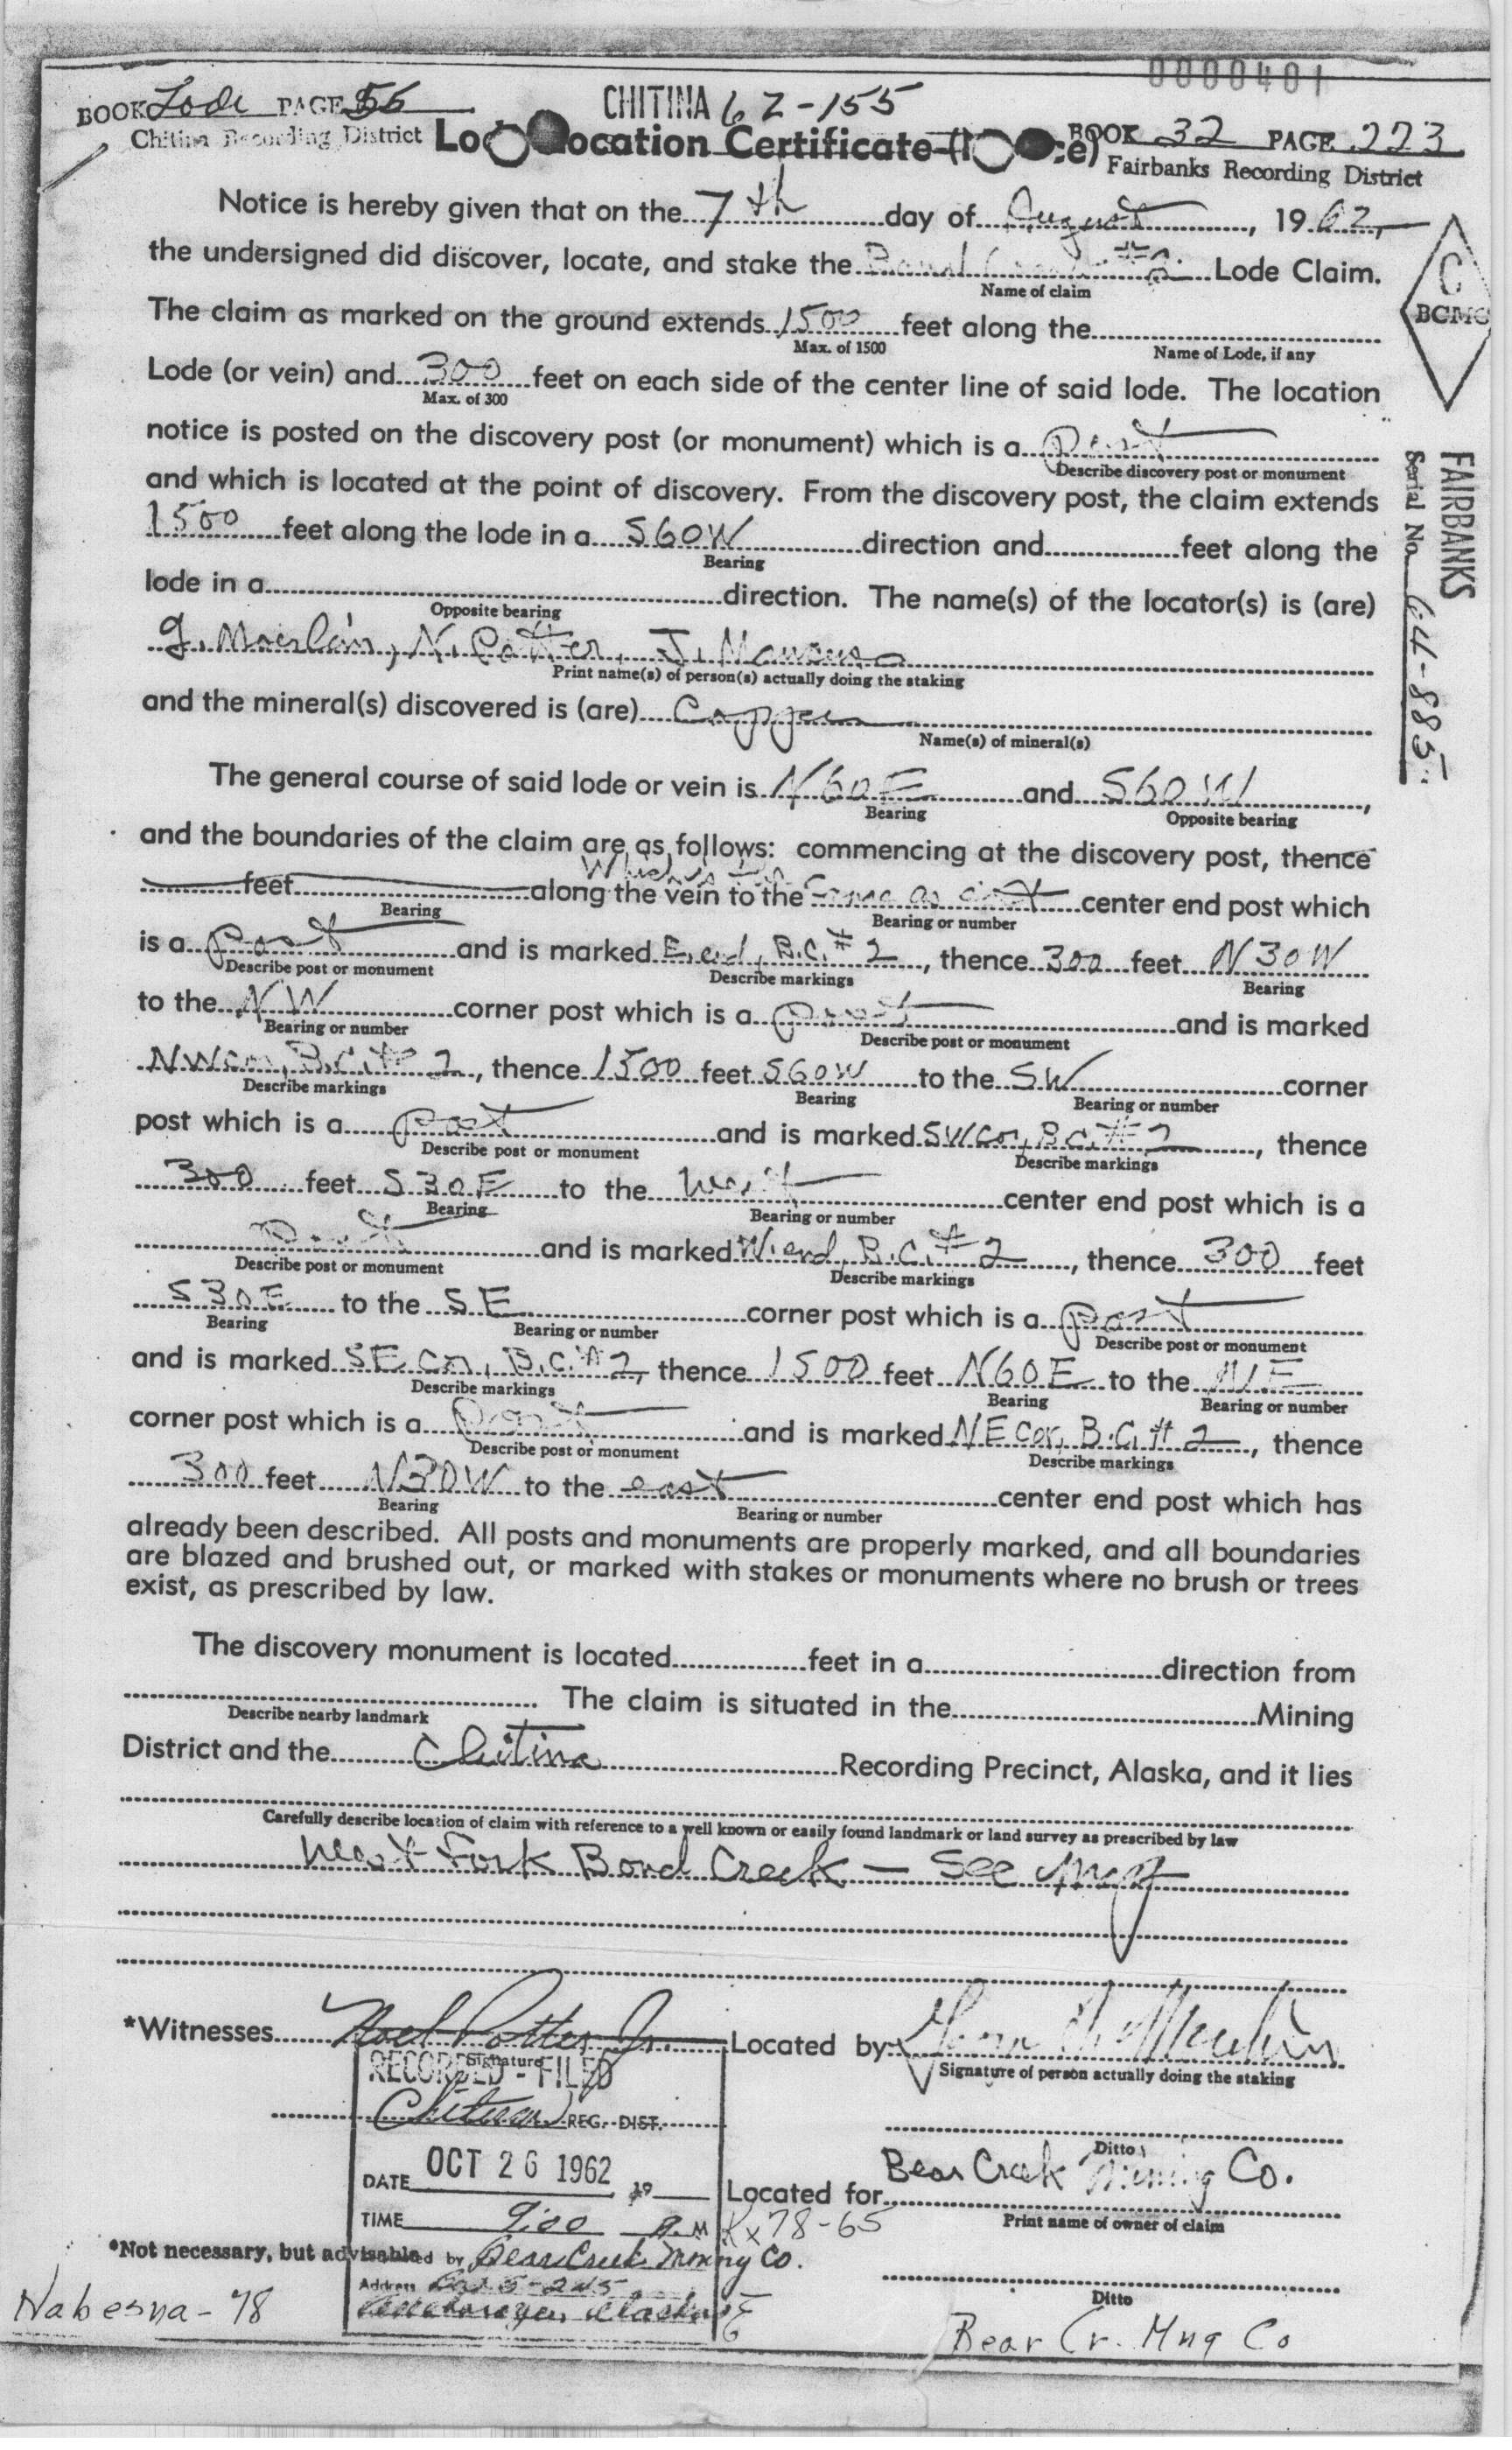 0000401
BOOK Lode PAGE 56
CHITINA 62-155
Chitina Recording District
Location Certificate
BOOK 32 PAGE 223
Fairbanks Recording District
Notice is hereby given that on the 7th day of August, 1962,
the undersigned did discover, locate, and stake the #2 Lode Claim.
Name of claim
The claim as marked on the ground extends 1500 feet along the
Max. of 1500 Name of Lode, if any
Lode (or vein) and 300 feet on each side of the center line of said lode. The location
Max. of 300
notice is posted on the discovery post (or monument) which is a Post
Describe discovery post or monument
and which is located at the point of discovery. From the discovery post, the claim extends
1500 feet along the lode in a S60W direction and feet along the
Bearing
lode in a direction. The name(s) of the locator(s) is (are)
Opposite bearing
N. Potter, J.
Print name(s) of person(s) actually doing the staking
and the mineral(s) discovered is (are) Copper
Name(s) of mineral(s)
The general course of said lode or vein is N60E and S60W,
Bearing Opposite bearing
and the boundaries of the claim are as follows: commencing at the discovery post, thence
Which is
feet along the vein to the same as center end post which
Bearing Bearing or number
is a post and is marked E. end, B.C. #2, thence 300 feet N30W
Describe post or monument Describe markings Bearing
to the NW corner post which is a post and is marked
Bearing or number Describe post or monument
NW cor, B.C. #2, thence 1500 feet S60W to the SW corner
Describe markings Bearing Bearing or number
post which is a post and is marked SW Cor, B.C. #2, thence
Describe post or monument Describe markings
300 feet S30E to the West center end post which is a
Bearing Bearing or number
Post and is marked W. end, B.C. #2, thence 300 feet
Describe post or monument Describe markings
S30E to the SE corner post which is a post
Bearing Bearing or number Describe post or monument
and is marked SE Cor, B.C. #2, thence 1500 feet N60E to the NE
Describe markings Bearing Bearing or number
corner post which is a Post and is marked NE Cor, B.C. #2, thence
Describe post or monument Describe markings
300 feet N30W to the east center end post which has
Bearing Bearing or number
already been described. All posts and monuments are properly marked, and all boundaries
are blazed and brushed out, or marked with stakes or monuments where no brush or trees
exist, as prescribed by law.
The discovery monument is located feet in a direction from
. The claim is situated in the Mining
Describe nearby landmark
District and the Chitina Recording Precinct, Alaska, and it lies
Carefully describe location of claim with reference to a well known or easily found landmark or land survey as prescribed by law
West Fork Bond Creek — See map
*Witnesses Noel Potter Jr. Located by
Signature Signature of person actually doing the staking
RECORDED - FILED
Chitina REG. DIST.
Ditto
DATE OCT 26 1962 19
Bear Creek Mining Co.
Located for
Print name of owner of claim
TIME 9:00 A.M
Rx 78-65
*Not necessary, but advisable
by Bear Creek Mining Co.
Address
Anchorage, Alaska
Ditto
Nabesna-78
Bear Cr. Mng Co
C
BCMC
FAIRBANKS
Serial No. 64-885